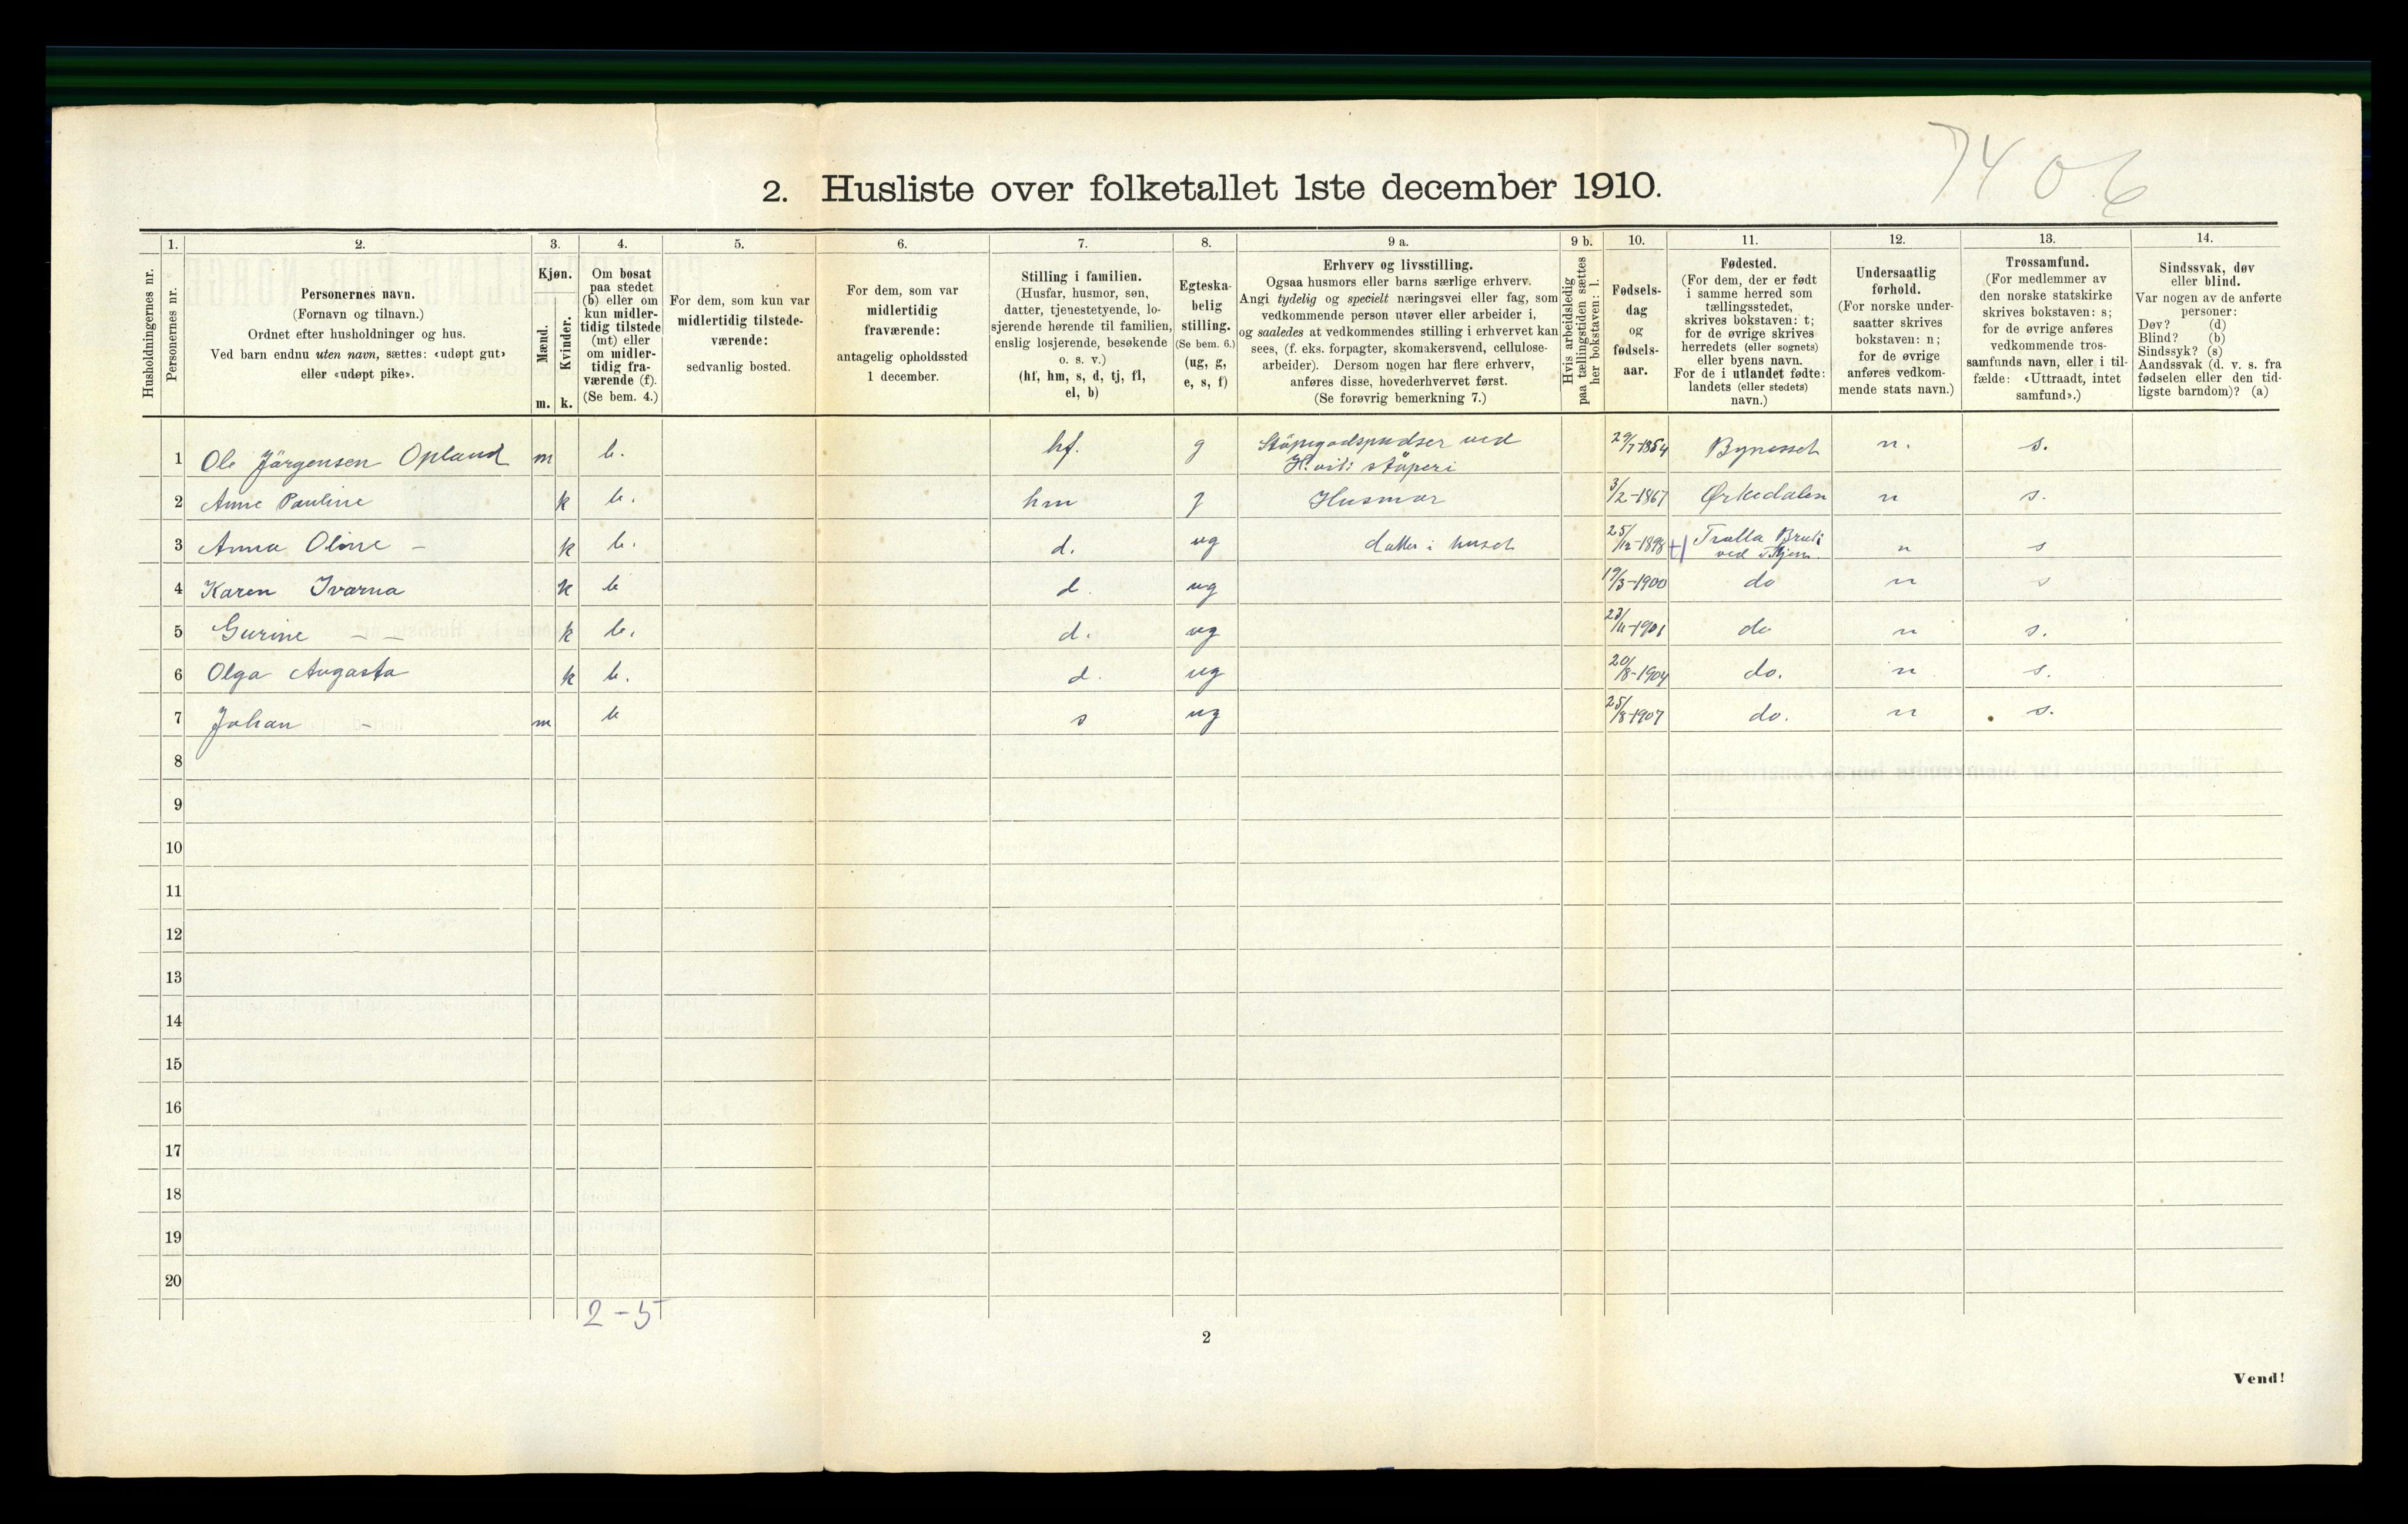 7406
2. Husliste over folketallet 1ste december 1910.
1. 2. 3. 4. 5. 6. 7. 8. 9 a. 9 b. 10. 11. 12. 13. 14.
Husholdningernes nr.
Personernes nr.
Personernes navn.
(Fornavn og tilnavn.)
Ordnet efter husholdninger og hus.
Ved barn endnu uten navn, sættes: «udøpt gut»
eller «udøpt pike».
Kjøn.
Mænd.
Kvinder.
m. k.
Om bosat
paa stedet
(b) eller om
kun midler-
tidig tilstede
(mt) eller
om midler-
tidig fra-
værende (f).
(Se bem. 4.)
For dem, som kun var
midlertidig tilstede-
værende:
sedvanlig bosted.
For dem, som var
midlertidig
fraværende:
antagelig opholdssted
1 december.
Stilling i familien.
(Husfar, husmor, søn,
datter, tjenestetyende, lo-
sjerende hørende til familien,
enslig losjerende, besøkende
o. s. v.)
(hf, hm, s, d, tj, fl,
el, b)
Egteska-
belig
stilling.
(Se bem. 6.)
(ug, g,
e, s, f)
Erhverv og livsstilling.
Ogsaa husmors eller barns særlige erhverv.
Angi tydelig og specielt næringsvei eller fag, som
vedkommende person utøver eller arbeider i,
og saaledes at vedkommendes stilling i erhvervet kan
sees, (f. eks. forpagter, skomakersvend, cellulose-
arbeider). Dersom nogen har flere erhverv,
anføres disse, hovederhvervet først.
(Se forøvrig bemerkning 7.)
Hvis arbeidsledig
paa tællingstiden sættes
her bokstaven: l.
Fødsels-
dag
og
fødsels-
aar.
Fødested.
(For dem, der er født
i samme herred som
tællingsstedet,
skrives bokstaven: t;
for de øvrige skrives
herredets (eller sognets)
eller byens navn.
For de i utlandet fødte:
landets (eller stedets)
navn.)
Undersaatlig
forhold.
(For norske under-
saatter skrives
bokstaven: n;
for de øvrige
anføres vedkom-
mende stats navn.)
Trossamfund.
(For medlemmer av
den norske statskirke
skrives bokstaven: s;
for de øvrige anføres
vedkommende tros-
samfunds navn, eller i til-
fælde: «Uttraadt, intet
samfund».)
Sindssvak, døv
eller blind.
Var nogen av de anførte
personer:
Døv? (d)
Blind? (b)
Sindssyk? (s)
Aandssvak (d. v. s. fra
fødselen eller den tid-
ligste barndom)? (a)
1 Ole Jörgensen Opland m b. hf. g Stöpegodspudser ved 29/7-1854 Bynesset n. s.
stöperi
2 Anne Pauline k b. hm g Husmor 3/2-1867 Ørkedalen n s.
3 Anna Oline - k b. d. ug datter i huset 25/12-1898 Trolla Bruk n s
ved Thjem.
4 Karen Ivarna k b d ug 19/3-1900 do n s
5 Gurine - - k b. d. ug 23/11-1901 do n s.
6 Olga Augasta k b. d. ug 20/8-1904 do. n s.
7 Johan - m b s ug 25/8-1907 do. n s.
8
9
10
11
12
13
14
15
16
17
18
19
20
2-5
2
Vend!